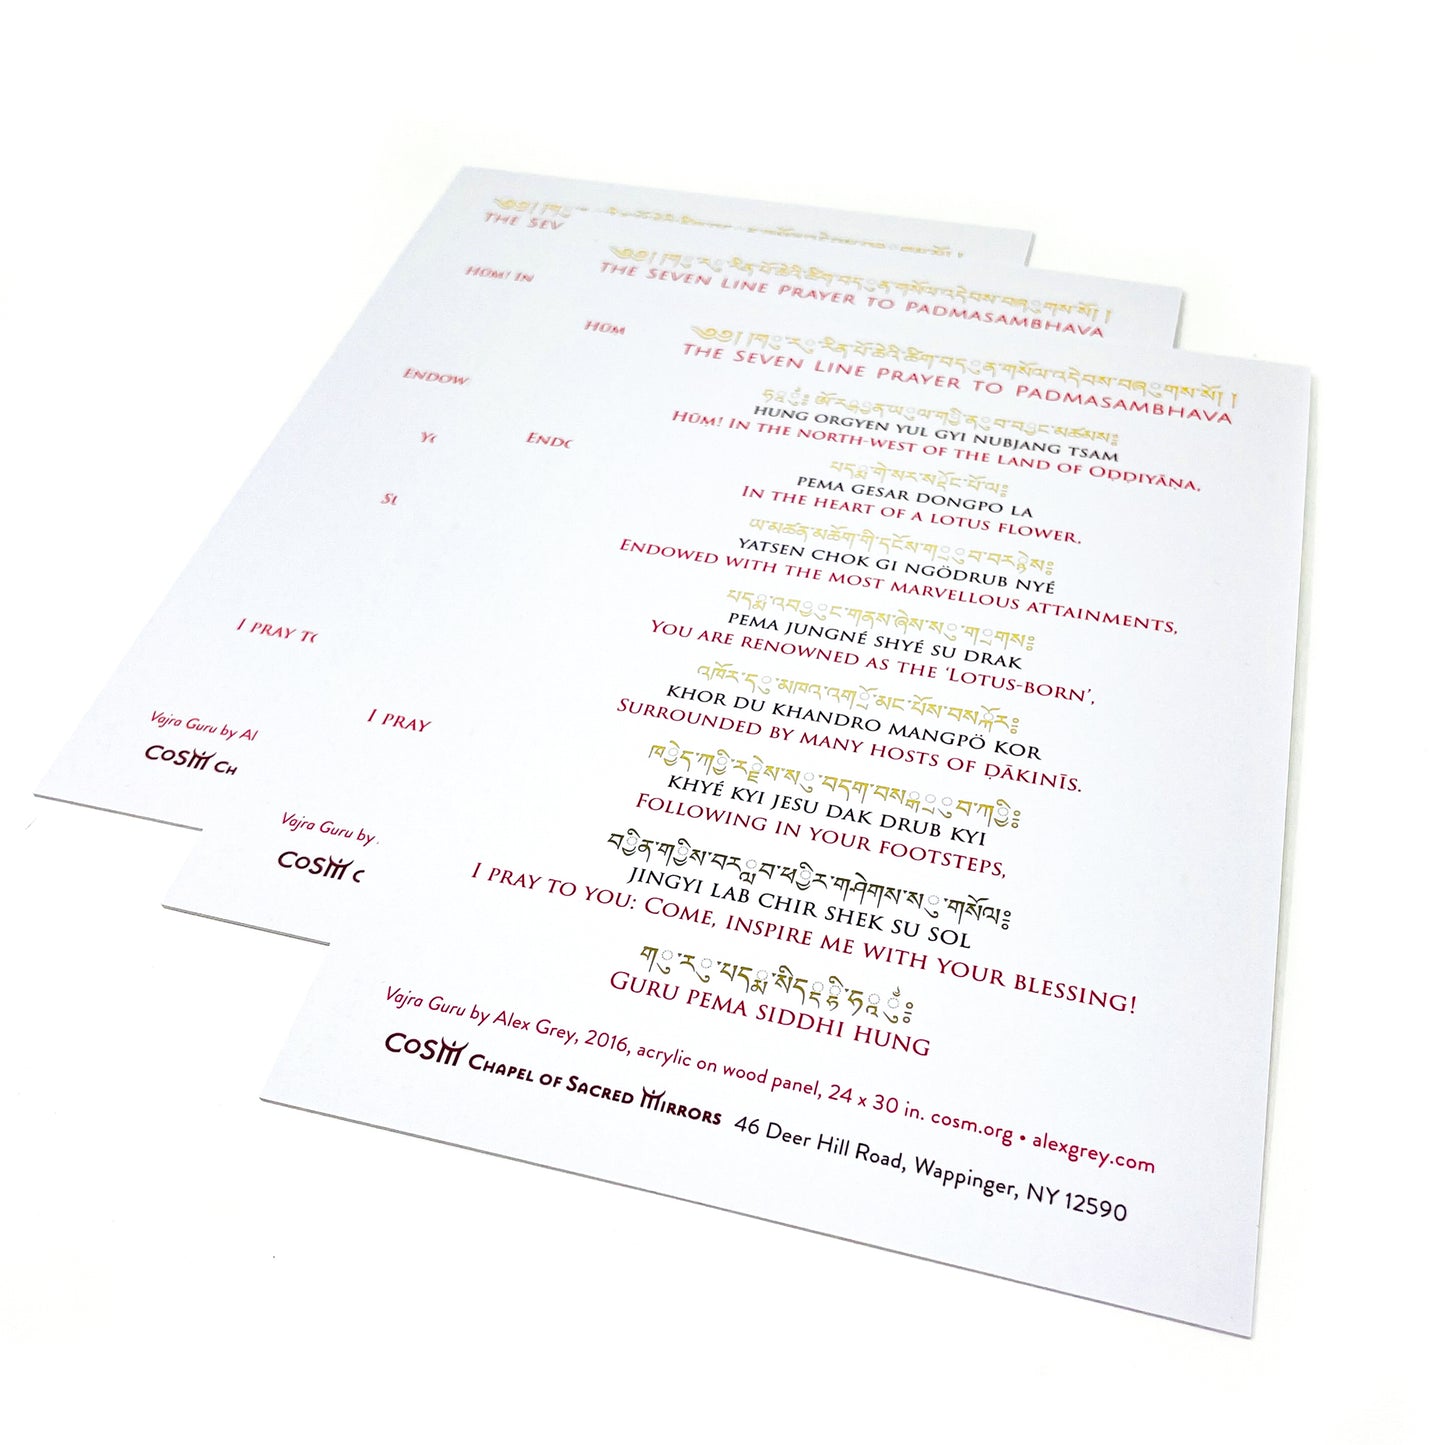 THE SEV
HŪM! IN
ENDOW
I PRAY
Vajra Guru by Al
COSM CH
༄༅། །གུ་རུ་རིན་པོ་ཆེའི་ཚིག་བདུན་གསོལ་འདེབས་བཞུགས་སོ། །
THE SEVEN LINE PRAYER TO PADMASAMBHAVA
HŪM
ENDO
I PRAY
Vajra Guru by
COSM C
༄༅། །གུ་རུ་རིན་པོ་ཆེའི་ཚིག་བདུན་གསོལ་འདེབས་བཞུགས་སོ། །
THE SEVEN LINE PRAYER TO PADMASAMBHAVA
ཧཱུྃ༔ ཨོ་རྒྱན་ཡུལ་གྱི་ནུབ་བྱང་མཚམས༔
HUNG ORGYEN YUL GYI NUBJANG TSAM
HŪM! IN THE NORTH-WEST OF THE LAND OF OḌḌIYĀṆA,
པདྨ་གེ་སར་སྡོང་པོ་ལ༔
PEMA GESAR DONGPO LA
IN THE HEART OF A LOTUS FLOWER,
ཡ་མཚན་མཆོག་གི་དངོས་གྲུབ་བརྙེས༔
YATSEN CHOK GI NGÖDRUB NYÉ
ENDOWED WITH THE MOST MARVELLOUS ATTAINMENTS,
པདྨ་འབྱུང་གནས་ཞེས་སུ་གྲགས༔
PEMA JUNGNÉ SHYÉ SU DRAK
YOU ARE RENOWNED AS THE ‘LOTUS-BORN’,
འཁོར་དུ་མཁའ་འགྲོ་མང་པོས་བསྐོར༔
KHOR DU KHANDRO MANGPÖ KOR
SURROUNDED BY MANY HOSTS OF ḌĀKINĪS.
ཁྱེད་ཀྱི་རྗེས་སུ་བདག་བསྒྲུབ་ཀྱི༔
KHYÉ KYI JESU DAK DRUB KYI
FOLLOWING IN YOUR FOOTSTEPS,
བྱིན་གྱིས་བརླབ་ཕྱིར་གཤེགས་སུ་གསོལ༔
JINGYI LAB CHIR SHEK SU SOL
I PRAY TO YOU: COME, INSPIRE ME WITH YOUR BLESSING!
གུ་རུ་པདྨ་སིདྡྷི་ཧཱུྃ༔
GURU PEMA SIDDHI HUNG
Vajra Guru by Alex Grey, 2016, acrylic on wood panel, 24 x 30 in. cosm.org • alexgrey.com
COSM CHAPEL OF SACRED MIRRORS 46 Deer Hill Road, Wappinger, NY 12590